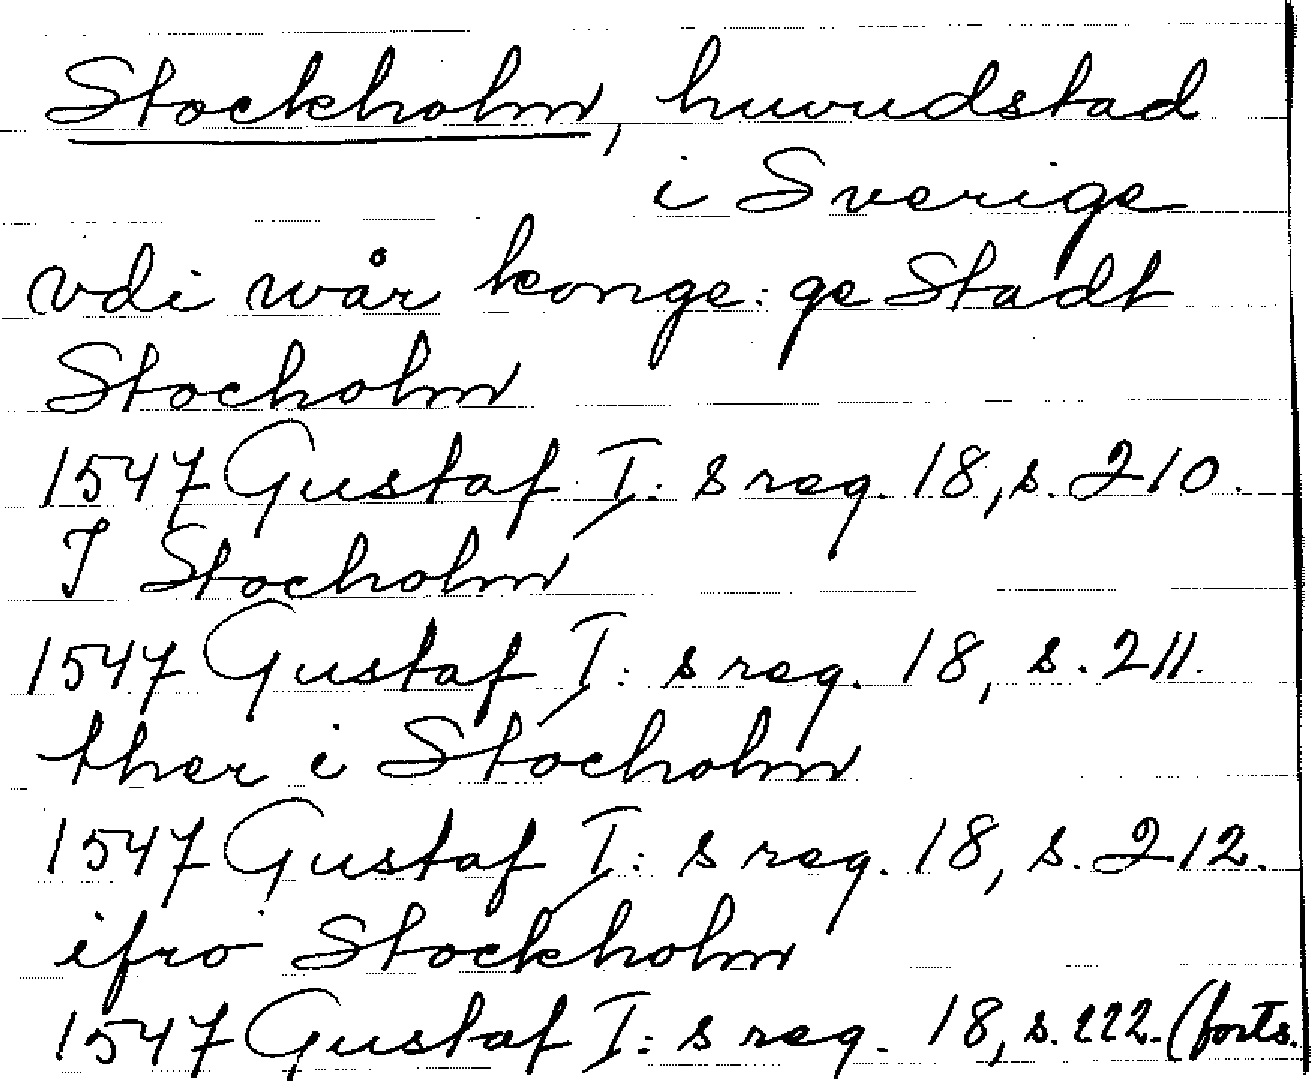 Stockholm, huvudstad
i Sverige
vdi wår konge: ge Stadt
Stocholm
1547 Gustaf I: s reg. 18, s. 210.
I Stocholm
1547 Gustaf I: s reg. 18, s. 211.
ther i Stocholm
1547 Gustaf I: s reg. 18, s. 212.
ifro Stockholm
1547 Gustaf I: s reg. 18, s. 222. (forts.